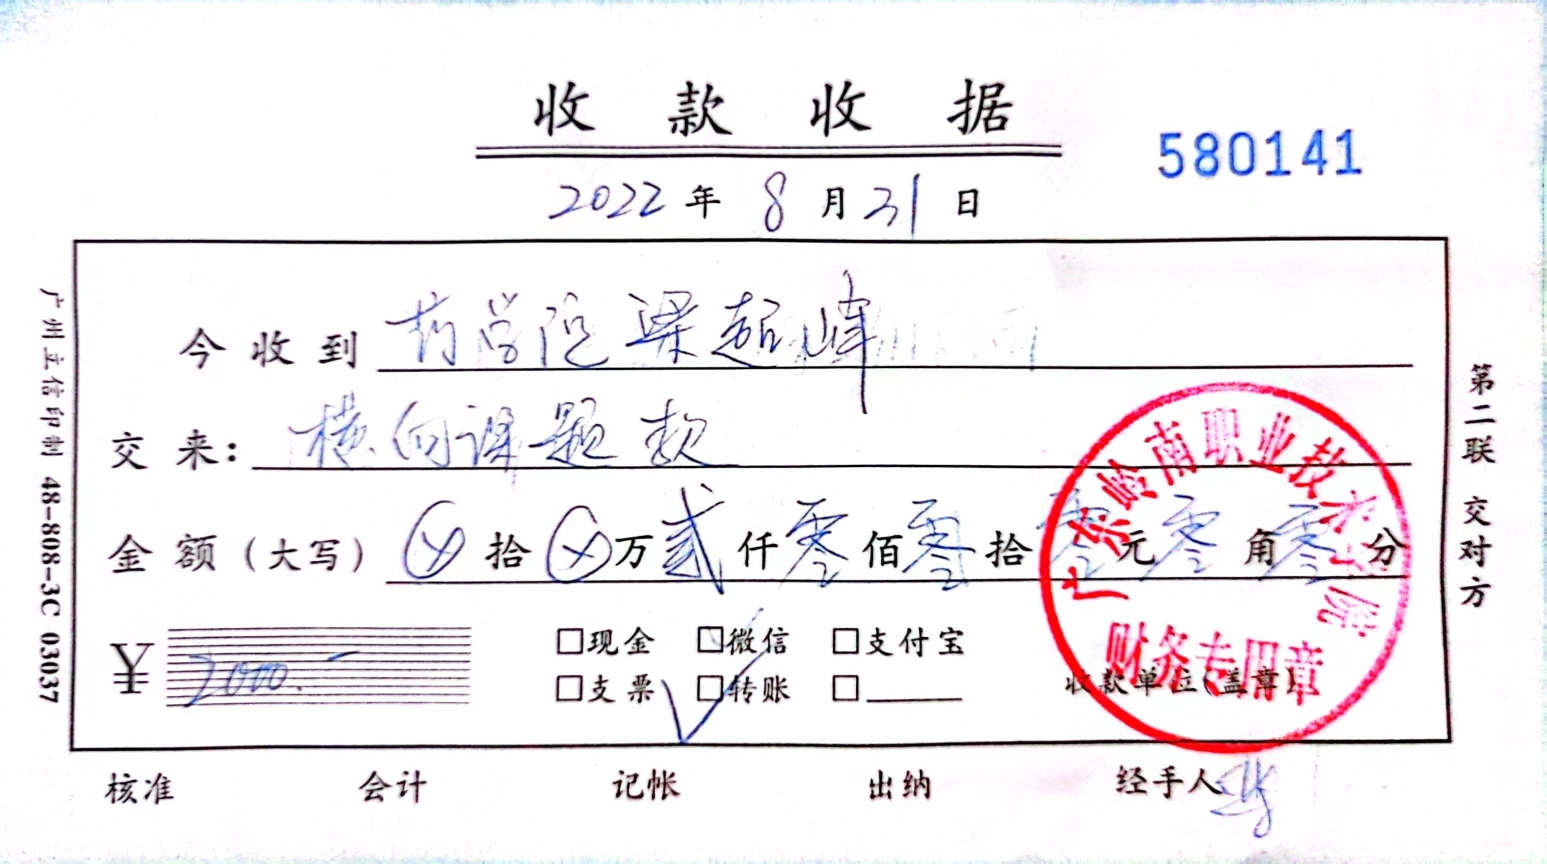 收款收据
580141
2022年8月31日
今收到 药学院梁超峰
交来: 横向课题款
金额(大写) ⊗拾⊗万贰仟零佰零拾零元零角零分
¥ 2000.-
□现金 □微信 □支付宝
□支票 □转账 □
收款单位(盖章)
广东岭南职业技术学院
财务专用章
核准 会计 记帐 出纳 经手人
广州立信印制 48-808-3C 03037
第二联 交对方